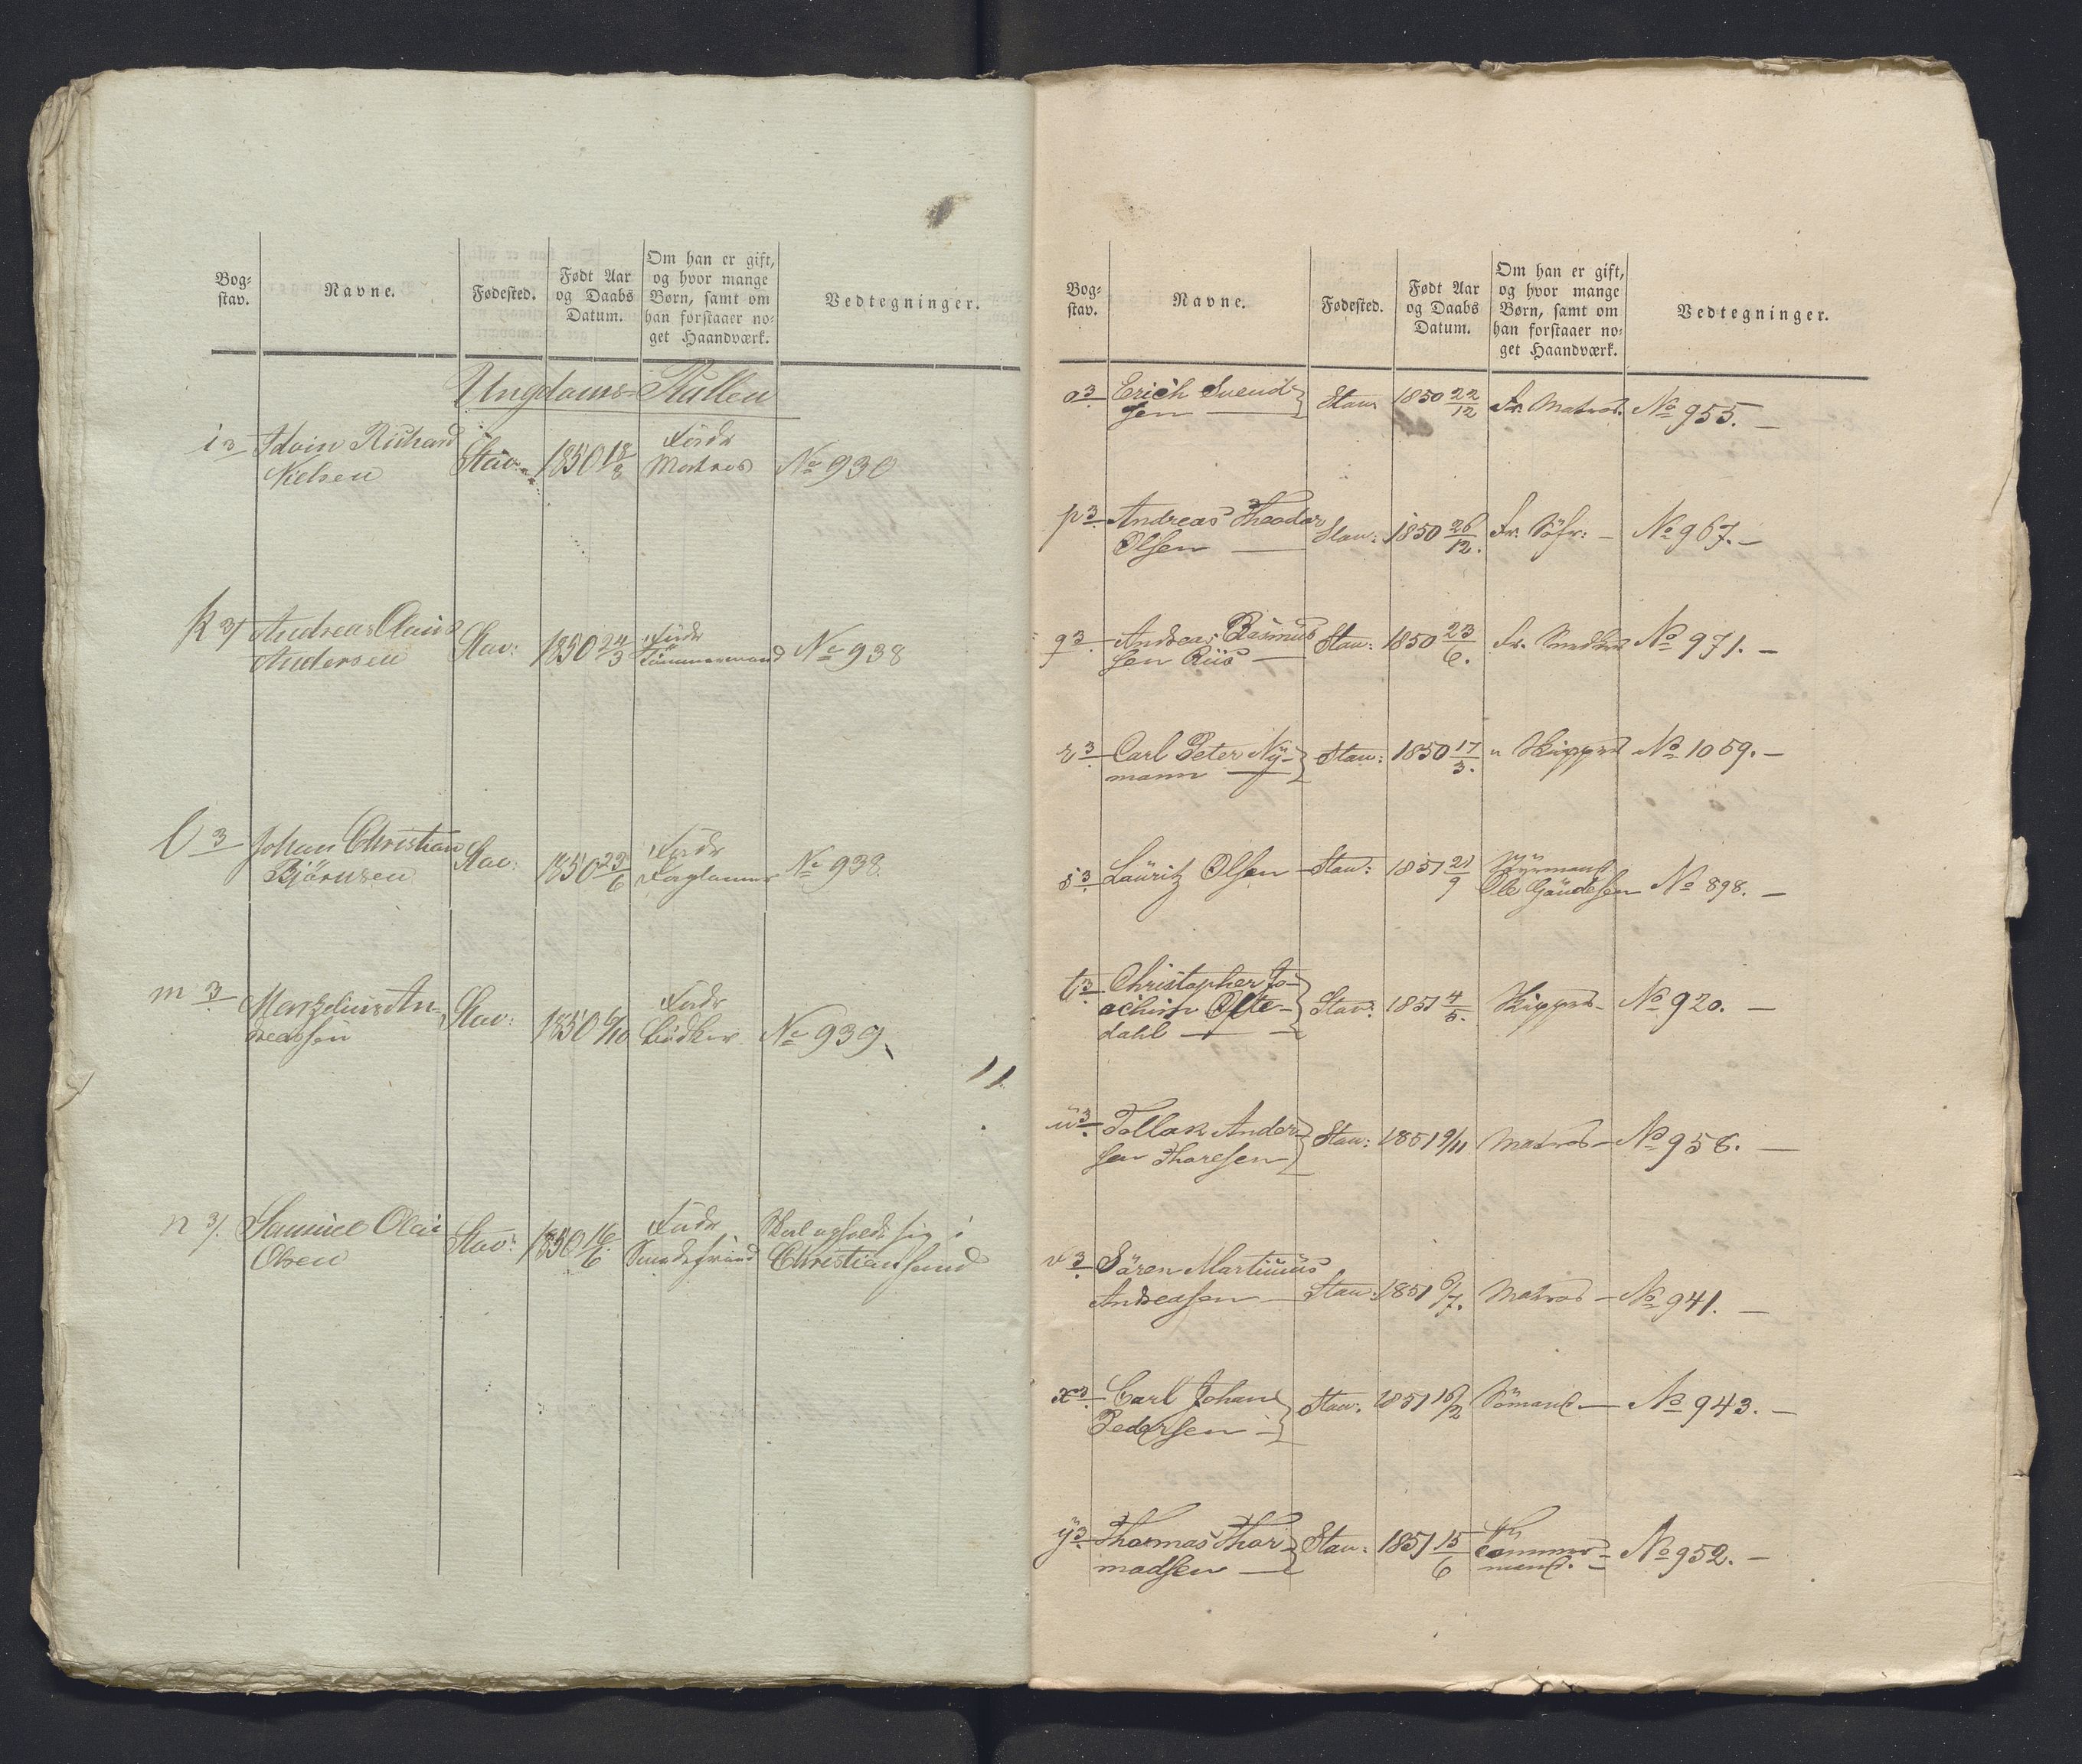 Bog-
stav.
Navne.
Fødested.
Født Aar
og Daabs
Datum.
Om han er gift,
og hvor mange
Børn, samt om
han forstaaer no-
get Haandværk.
Vedtegninger.
Ungdoms-Rullen
i 3 Edvin Richard
Nielsen
Stav: 1850 18/8
Fader
Matros
No 930
k 3/ Andreas Claus
Andersen
Stav: 1850 24/3
Fader
Tømmermand
No 938
l 3 Johan Christian
Bjørnsen
Stav: 1850 23/6
Fader
No 938
m 3 Markelius An-
dreassen
Stav: 1850 6/10
Fader
Bødker
No 939
n 3/ Samuel Olai
Olsen
Stav: 1850 16/6
Fader
Skal opholde sig i
Christiansund
Bog-
stav.
Navne.
Fødested.
Født Aar
og Daabs
Datum.
Om han er gift,
og hvor mange
Børn, samt om
han forstaaer no-
get Haandværk.
Vedtegninger.
o 3 Erich Svend-
sen
Stav: 1850 22/12 Fr. Matros. No 955. —
p 3 Andreas Theodor
Olsen — Stav: 1850 26/12. Fr. Söfr: — No 967. —
q 3 Andreas Rasmus
sen Riis — Stav: 1850 23/6. Fr. Snedker No 971. —
r 3 Carl Peter Ny-
mann — Stav: 1850 17/3. " Skipper No 1059. —
s 3 Lauritz Olsen — Stav: 1851 21/9
Styrmand
Ole Gaudesen No 898. —
t 3 Christopher Jo-
achim Ofte-
dahl —
Stav: 1851 4/5. Skipper — No 920. —
u 3 Tollak Ander-
sen Thoresen
Stav: 1851 9/11 Matros — No 958. —
v 3 Sören Martinus
Andreasen — Stav: 1851 6/7. Matros — No 941. —
x 3 Carl Johan
Pedersen —
Stav: 1851 16/2 Sömand — No 943. —
y 3 Thomas Thor-
madsen —
Stav: 1851 15/6
Tömmer-
mand. — No 952. —